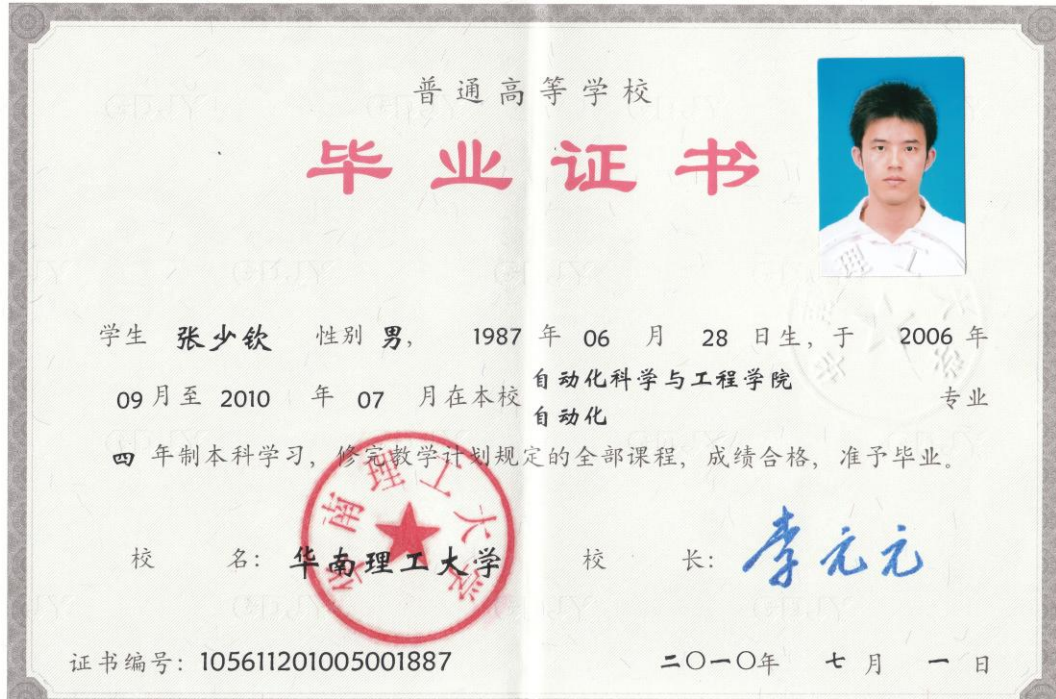 普通高等学校
毕业证书
学生 张少钦 性别 男, 1987 年 06 月 28 日生, 于 2006 年
09 月至 2010 年 07 月在本校 自动化科学与工程学院
自动化 专业
四 年制本科学习, 修完教学计划规定的全部课程, 成绩合格, 准予毕业。
华南理工大学
校 名: 华南理工大学 校 长: 李元元
证书编号: 105611201005001887 二〇一〇年 七 月 一 日